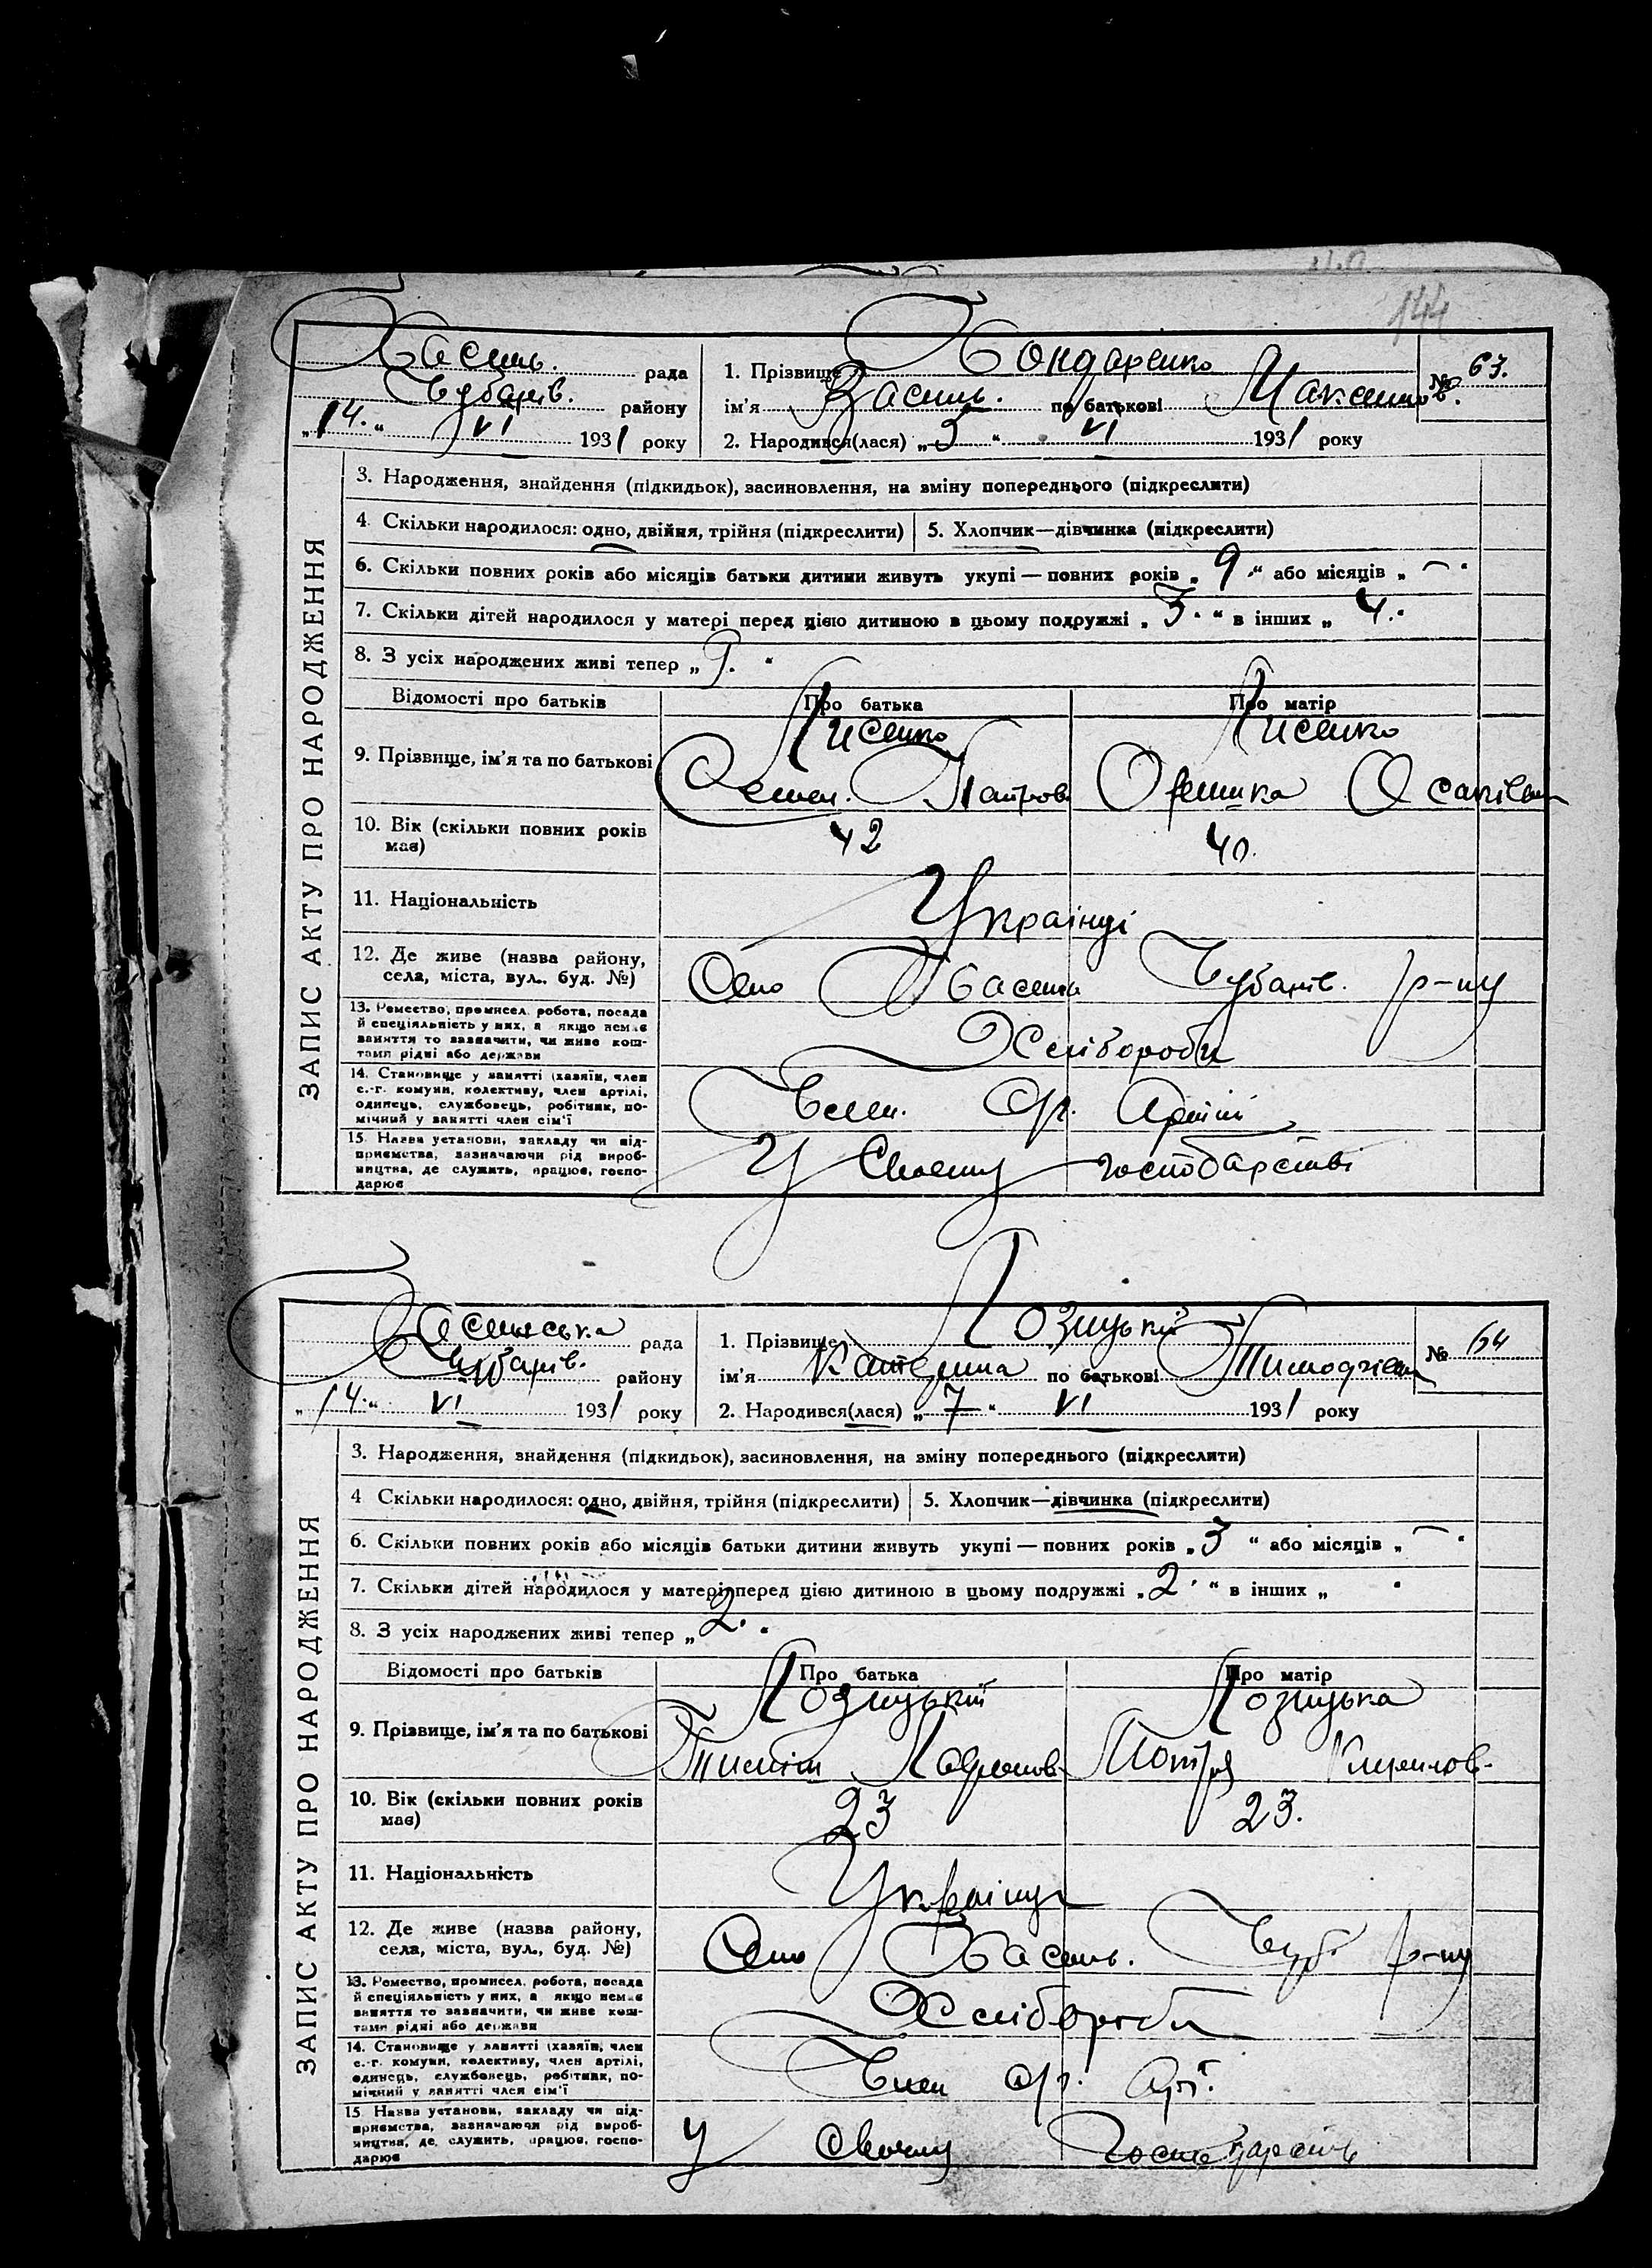 144
Хасень. рада
1. Прізвище Бондаренко
№ 63.
Чубарів. району
ім'я Василь. по батькові Максимов.
„14.“ VI 1931 року
2. Народився(лася) „3“ VI 1931 року
ЗАПИС АКТУ ПРО НАРОДЖЕННЯ
3. Народження, знайдення (підкидьок), засиновлення, на зміну попереднього (підкреслити)
4. Скільки народилося: одно, двійня, трійня (підкреслити) 5. Хлопчик—дівчинка (підкреслити)
6. Скільки повних років або місяців батьки дитини живуть укупі — повних років „9.“ або місяців „—“
7. Скільки дітей народилося у матері перед цією дитиною в цьому подружжі „3.“ в інших „4.“
8. З усіх народжених живі тепер „“
Відомості про батьків Про батька Про матір
9. Прізвище, ім'я та по батькові
Лисенко Лисенко
Семен. Петров Оришка
10. Вік (скільки повних років має) 42 40.
11. Національність Українці
12. Де живе (назва району, села, міста, вул.. буд. №)
Село Чубарів. р-ну
13. Ремество, промисел. робота, посада й спеціяльність у них, а якщо немає заняття то зазначити, чи живе коштами рідні або держави
Хлібороби
14. Становище у занятті (хазяїн, член с.-г. комуни, колективу, член артілі, одинець, службовець, робітник, помічний у занятті член сім'ї
Член. с/г. Артілі
15. Назва установи, закладу чи підприємства, зазначаючи рід виробництва, де служить, працює, господарює
У своєму господарстві
рада
1. Прізвище Лозицький
№ 64
Чубарів. району
ім'я Катерина по батькові Тимофіївн
„14.“ VI 1931 року
2. Народився(лася) „7“ VI 1931 року
ЗАПИС АКТУ ПРО НАРОДЖЕННЯ
3. Народження, знайдення (підкидьок), засиновлення, на зміну попереднього (підкреслити)
4 Скільки народилося: одно, двійня, трійня (підкреслити) 5. Хлопчик—дівчинка (підкреслити)
6. Скільки повних років або місяців батьки дитини живуть укупі — повних років „3“ або місяців „—“
7. Скільки дітей народилося у матері перед цією дитиною в цьому подружжі „2.“ в інших „
8. З усіх народжених живі тепер „2.“
Відомості про батьків Про батька Про матір
9. Прізвище, ім'я та по батькові
Лозицький Лозицька
Тиміш Мотря
10. Вік (скільки повних років має) 23 23.
11. Національність Українці
12. Де живе (назва району, села, міста, вул., буд. №)
Село Чуб. р-ну
13. Ремество, промисел. робота, посада й спеціяльність у них, а якщо немає заняття то зазначити, чи живе коштами рідні або держави
Хлібороби
14. Становище у занятті (хазяїн, член с.-г. комуни, колективу, член артілі, одинець, службовець, робітник, помічний у занятті член сім'ї
Член с/г. Арт.
15 Назва установи, закладу чи підприємства, зазначаючи рід виробництва, де служить, працює, господарює
У своєму господарстві